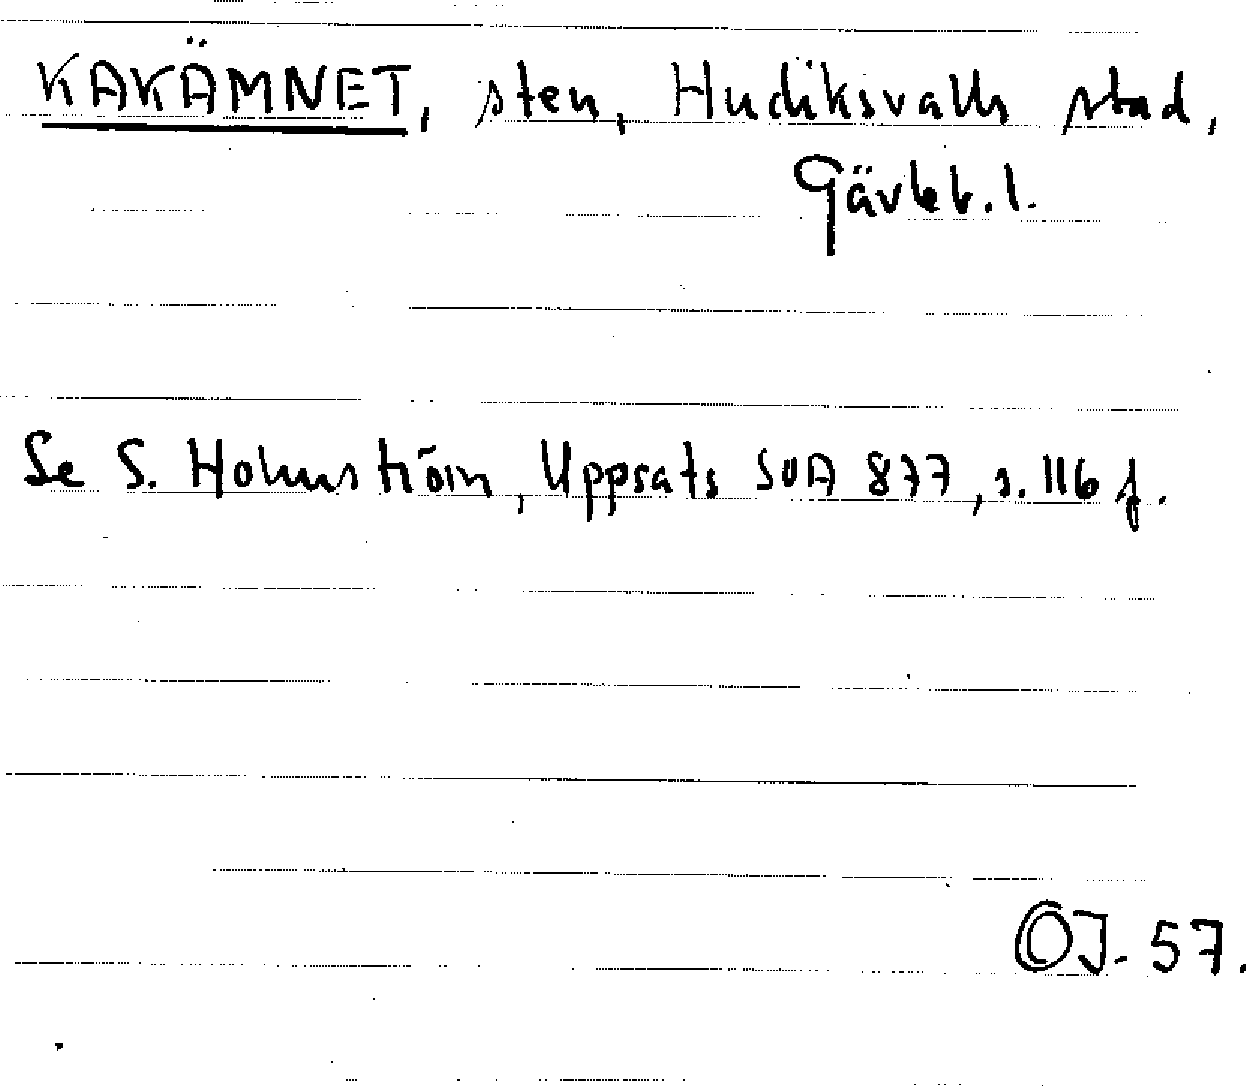 KAKÄMNET, sten, Hudiksvalls stad,
Gävleb. l.
Se S. Holmström, Uppsats SOA 877, s. 116 f.
OJ-57.